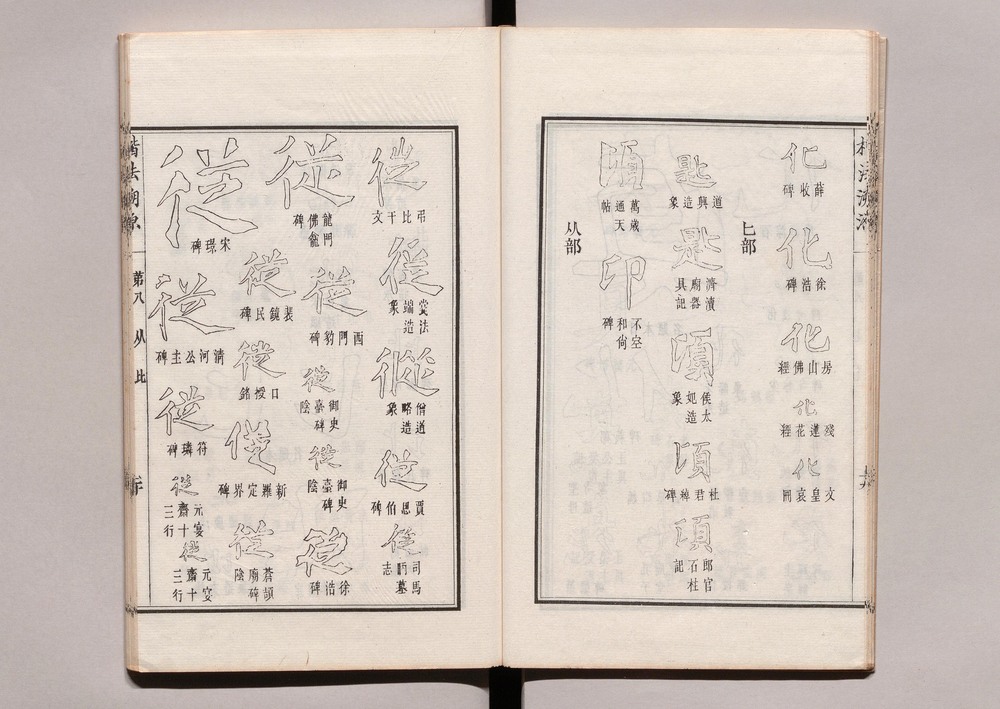 化
薛收碑
化
徐浩碑
化
房山佛經
化
殘蓮花經
化
文皇哀冊
匕部
匙
道興造象
匙
濟瀆廟器具記
頃
侯太妃造象
頃
杜君綽碑
頃
郎官石柱記
頃
萬歲通天帖
卬
不空和尙碑
从部
從
弔比干文
從
爨法端造象
從
僧道略造象
從
賈思伯碑
從
司馬昞墓志
從
龍門佛龕碑
從
西門豹碑
從
御史臺碑陰
從
御史臺碑陰
從
徐浩碑
從
裴鏡民碑
從
口授銘
從
新羅定界碑
從
蒼頡廟碑陰
從
宋璟碑
從
淸河公主碑
從
符璘碑
從
元宴齋十三行
從
元宴齋十三行
楷法溯源
第八
从
比